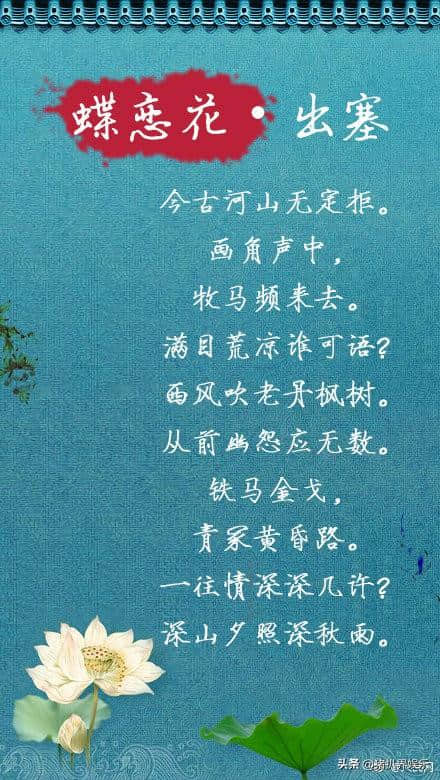 蝶恋花·出塞
今古河山无定拒。
画角声中，
牧马频来去。
满目荒凉谁可语？
西风吹老丹枫树。
从前幽怨应无数。
铁马金戈，
青冢黄昏路。
一往情深深几许？
深山夕照深秋雨。